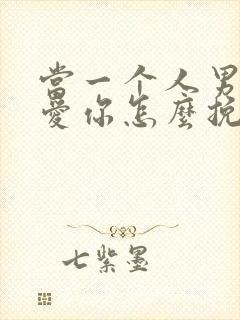 當一个人男
愛你怎麼挽
七紫墨